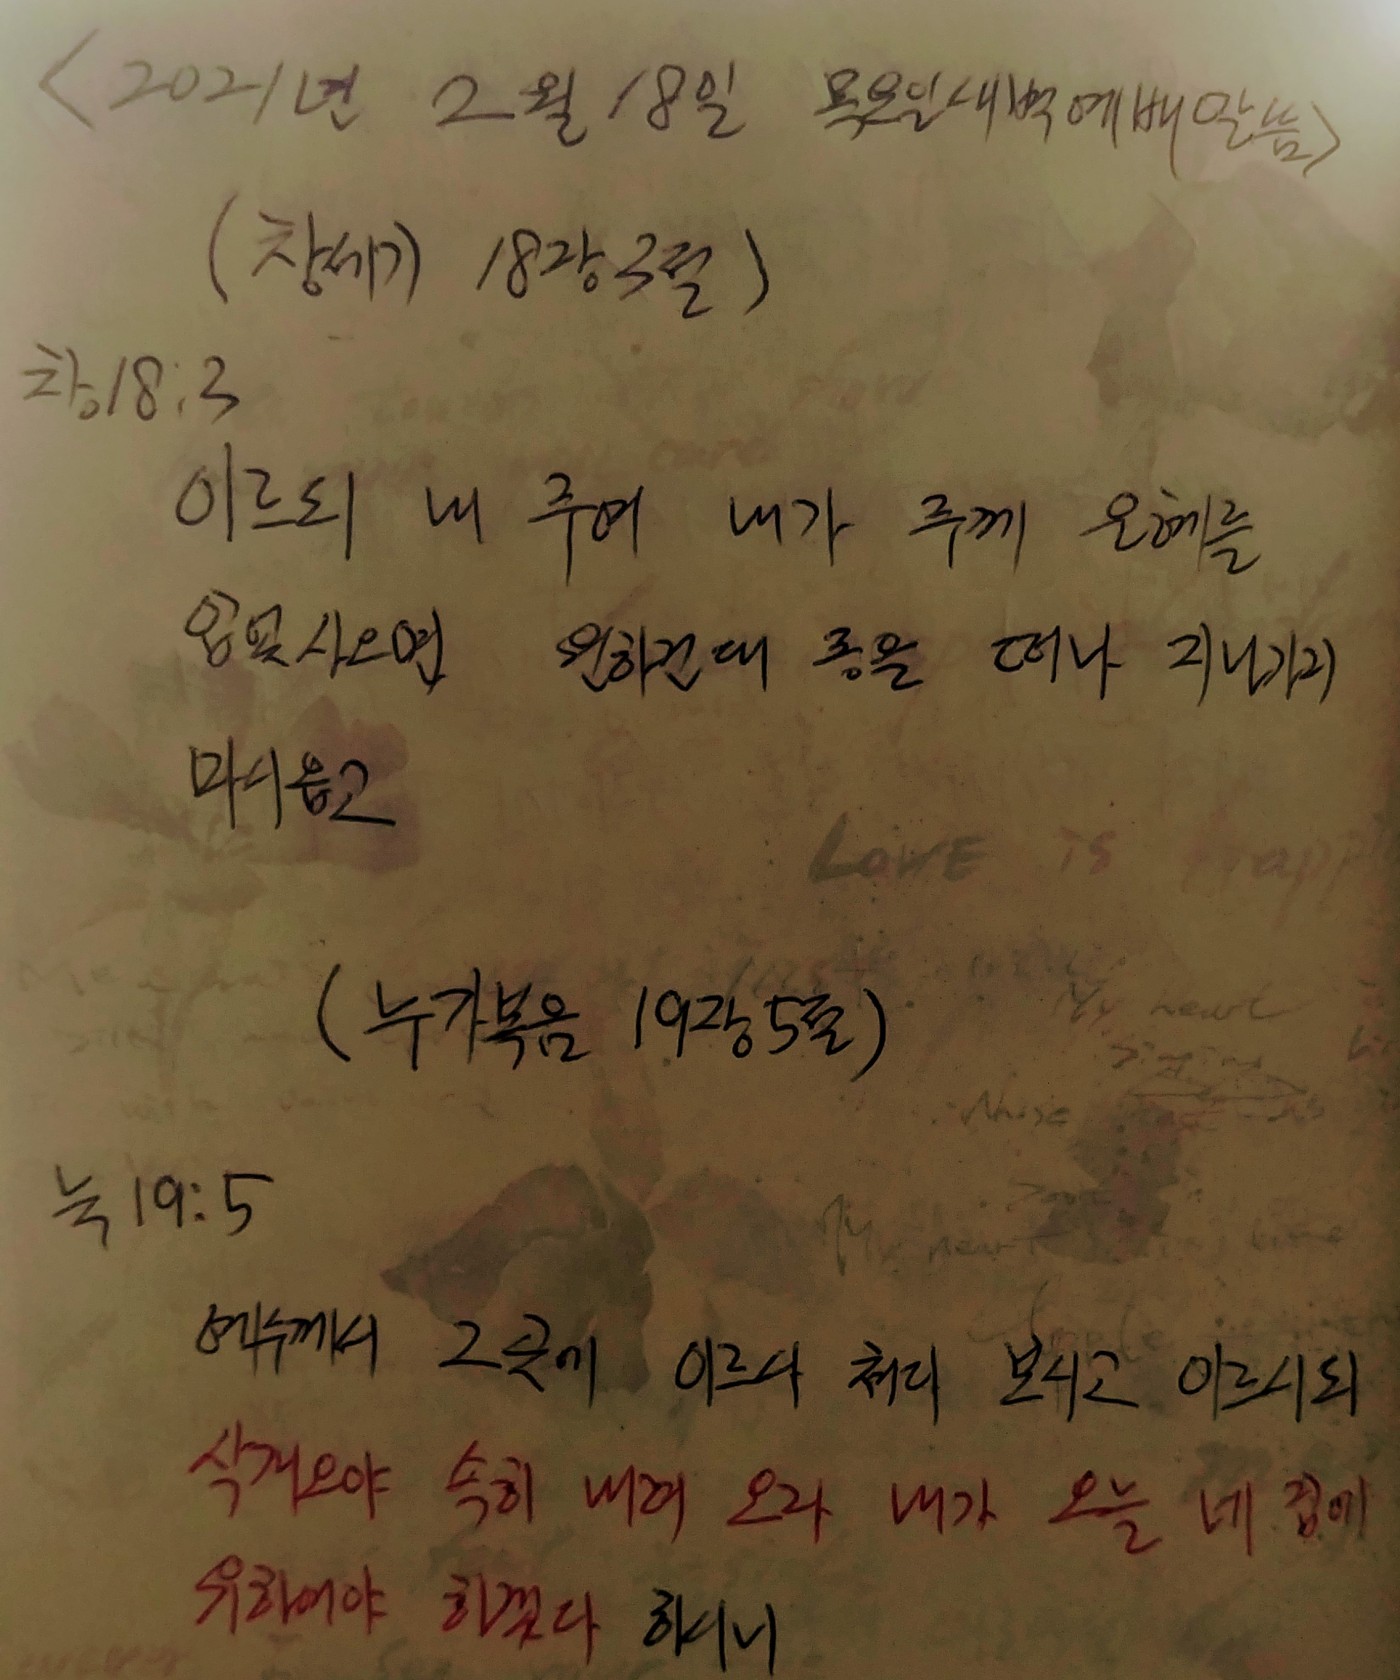 <2021년 2월 18일 목요일새벽예배말씀>
(창세기 18장3절)
창18:3
이르되 내 주여 내가 주께 은혜를
입었사오면 원하건대 종을 떠나 지나가지
마시옵고
LOVE is Happ
(누가복음 19장5절)
My heart
눅19:5
My heart
예수께서 그 곳에 이르사 쳐다 보시고 이르시되
삭개오야 속히 내려 오라 내가 오늘 네 집에
유하여야 하겠다 하시니